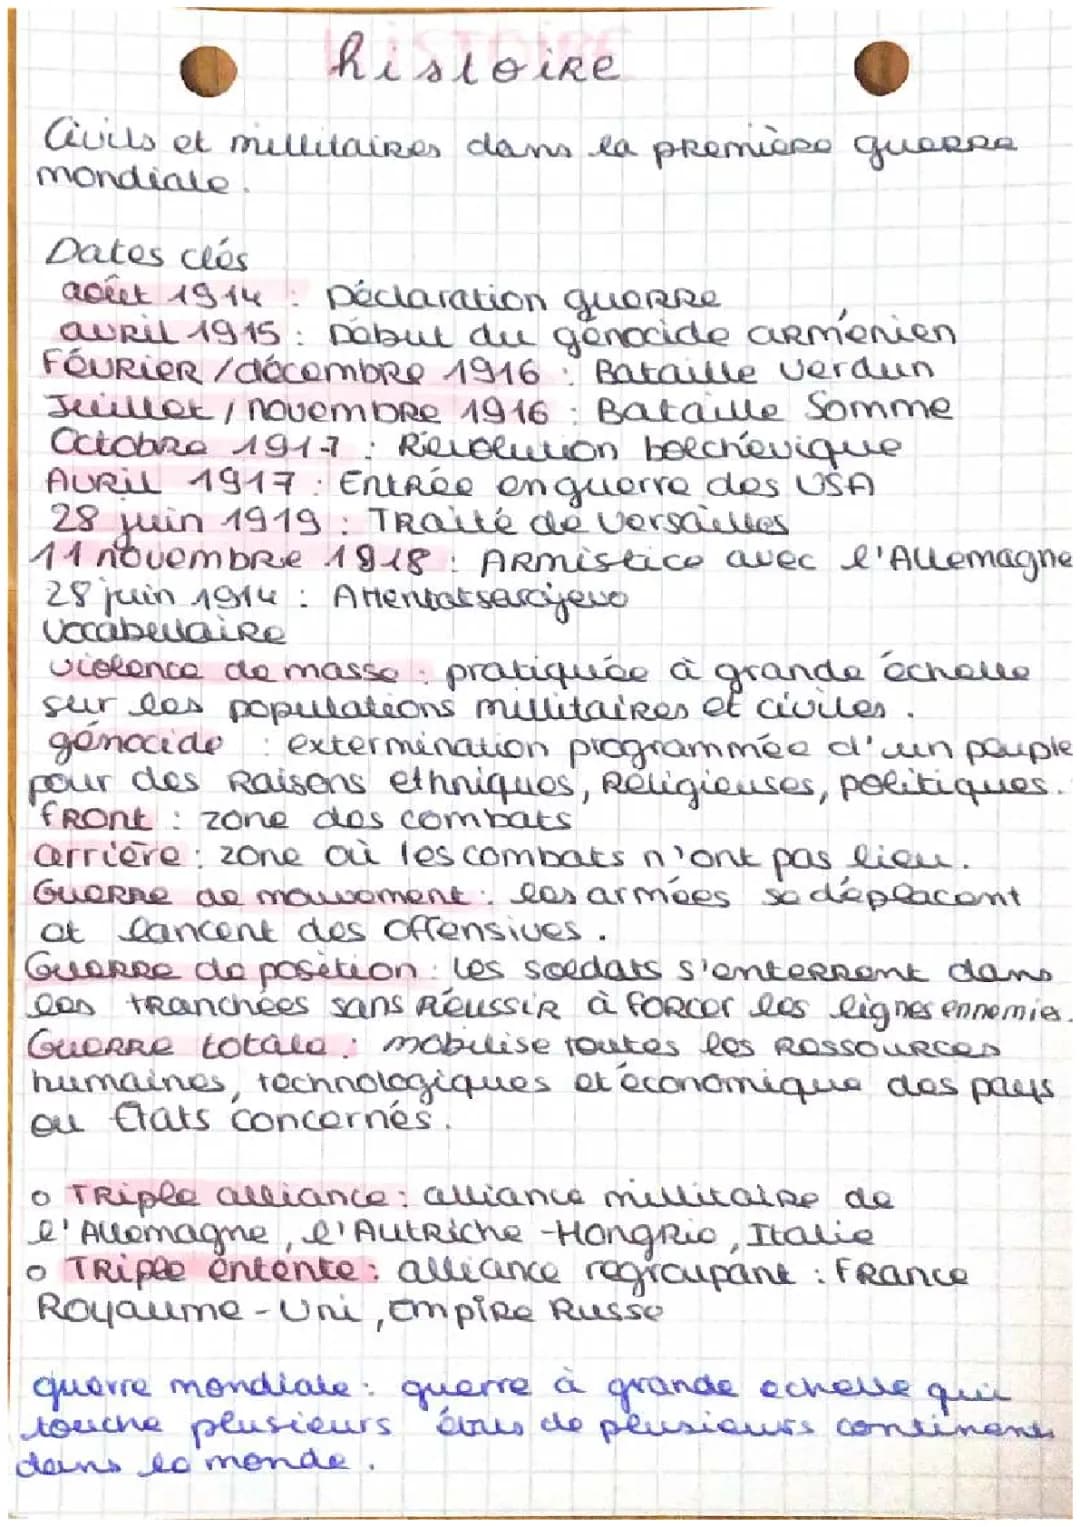 histoire
Civils et millitaires dans la première guerre
mondiale.
Dates clés
août 1914 : Déclaration guerre
avril 1915 : Début du génocide arménien
Février / décembre 1916 : Bataille Verdun
Juillet / novembre 1916 : Bataille Somme
Octobre 1917 : Révolution bolchévique
Avril 1917 : Entrée en guerre des USA
28 juin 1919 : Traité de Versailles
11 novembre 1918 : Armistice avec l'Allemagne
28 juin 1914 : Attentat sarajevo
Vocabulaire
violence de masse : pratiquée à grande échelle
sur les populations millitaires et civiles.
génocide : extermination programmée d'un peuple
pour des Raisons ethniques, Religieuses, politiques.
front : zone des combats
arrière : zone où les combats n'ont pas lieu.
Guerre de mouvement : les armées se déplacent
et lancent des offensives.
Guerre de position : les soldats s'enterrent dans
les tranchées sans réussir à forcer les lignes ennemies.
Guerre totale : mobilise toutes les ressources
humaines, technologiques et économique des pays
ou États concernés.
o Triple alliance : alliance millitaire de
l'Allemagne, l'Autriche-Hongrie, Italie
o Triple entente : alliance regroupant : France
Royaume-Uni, Empire Russe
guerre mondiale : guerre à grande echelle qui
touche plusieurs de plusieurs continents
dans le monde.